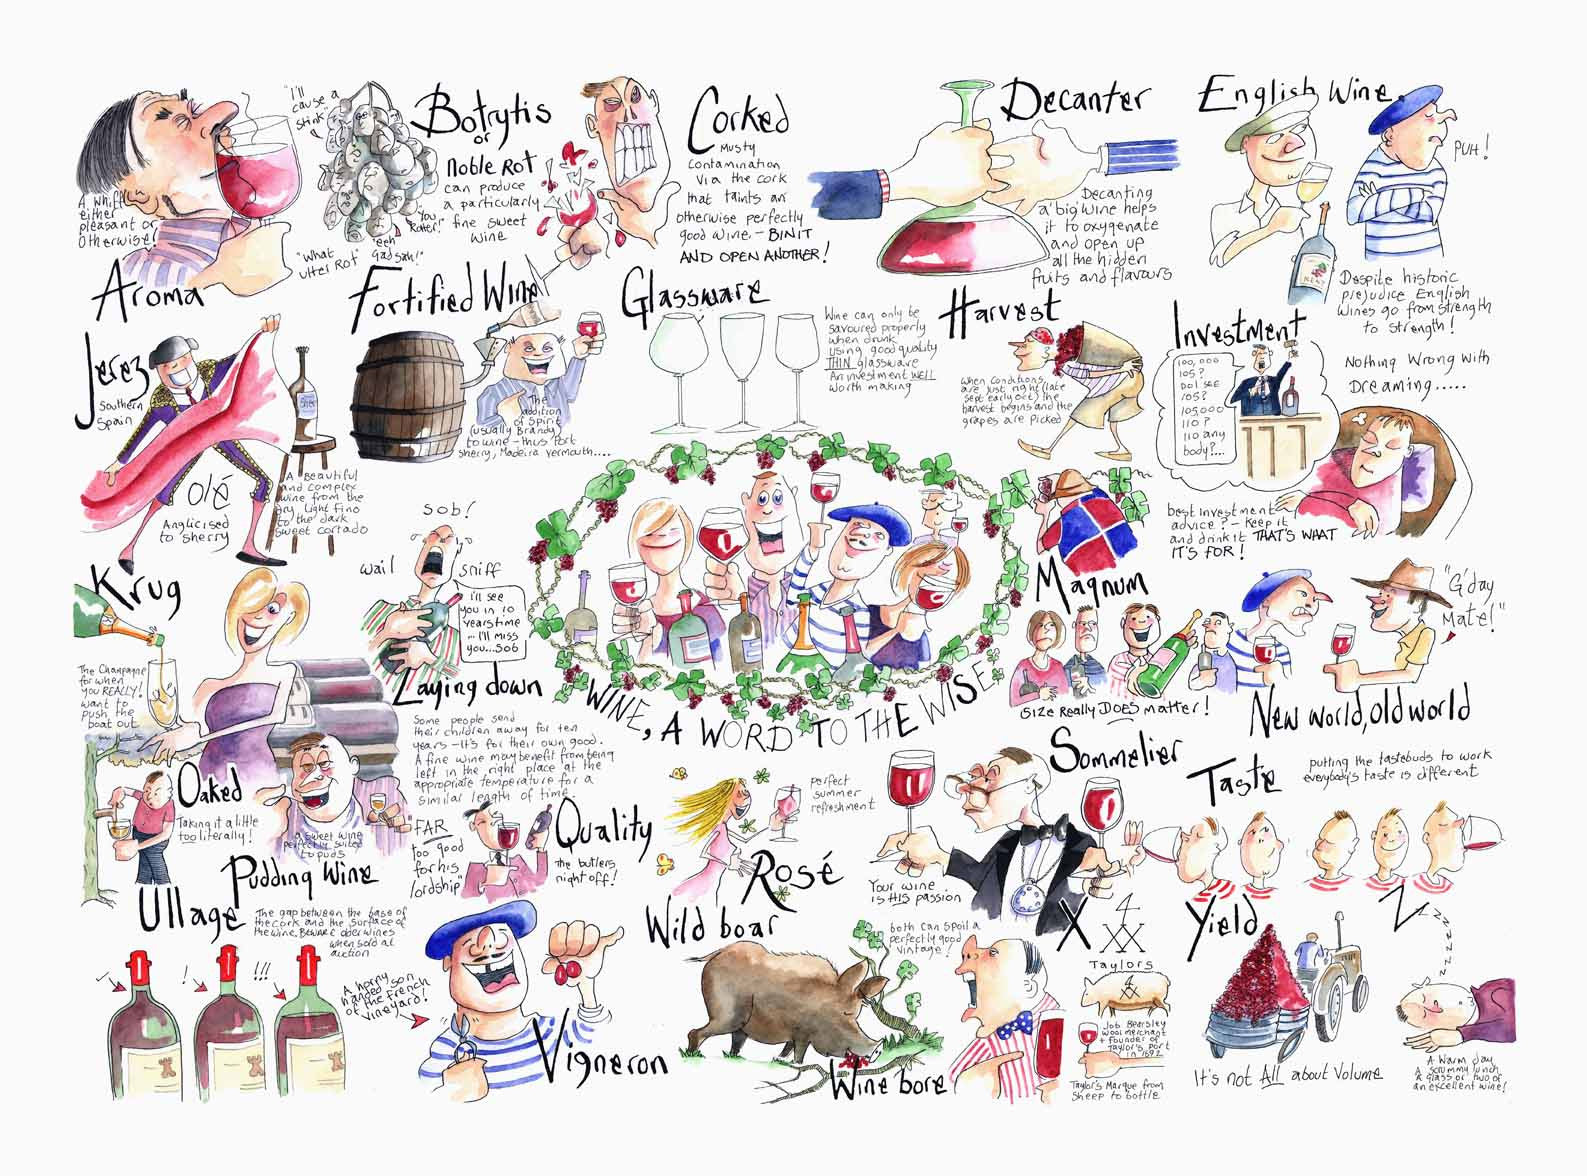 A whiff
either
pleasant or
otherwise!
Aroma
"I'll
cause a
stink"
"What
utter Rot"
"You
Rotter!"
"eeh
gadsah!"
Botrytis
or
Noble Rot
can produce
a particularly
fine sweet
wine
Corked
Musty
contamination
via the cork
that taints an
otherwise perfectly
good wine. - BIN IT
AND OPEN ANOTHER!
Decanter
Decanting
a 'big' wine helps
it to oxygenate
and open up
all the hidden
fruits and flavours
English Wine
PUH!
Despite historic
prejudice English
wines go from strength
to strength!
Jerez
Southern
Spain
Olé
Anglicised
to sherry
A Beautiful
and complex
wine from the
dry light Fino
to the dark
sweet cortado
Fortified Wine
The
addition
of spirit
(usually Brandy)
to wine - thus Port
sherry, Madeira vermouth....
Glassware
Wine can only be
savoured properly
when drunk
using good quality
THIN glassware
An investment WELL
worth making
Harvest
When conditions
are just right (late
sept early oct) the
harvest begins and the
grapes are picked
Investment
100,000
105?
Do I see
105?
105,000
110?
110 any
body?....
Nothing Wrong with
Dreaming.....
best investment
advice? - keep it
and drink it THAT'S WHAT
IT'S FOR!
Krug
The Champagne
for when
you REALLY!
want to
push the
boat out
Sob!
wail
sniff
I'll see
you in 10
years time
... I'll miss
you...SOB
Laying down
Some people send
their children away for ten
years - it's for their own good.
A fine wine may benefit from being
left in the right place at the
appropriate temperature for a
similar length of time.
WINE, A WORD TO THE WISE
Magnum
Size Really DOES matter!
"G'day
Mate!"
New world, old world
Oaked
Taking it a little
too literally!
a sweet wine
perfectly suited
to puds
Pudding Wine
"FAR
too good
for his
lordship"
Quality
the butlers
night off!
perfect
summer
refreshment
Rosé
Sommelier
Your wine
is HIS passion
Taste
putting the tastebuds to work
everybody's taste is different
Ullage
The gap between the base of
the cork and the surface of
the wine. Beware older wines
when sold at
auction
!
!!!
A horny
handed son
of the French
vineyard!
Vigneron
Wild boar
both can spoil a
perfectly good
vintage!
Wine bore
X
4
XX
Taylors
Job Bearsley
wool merchant
+ founder of
Taylor's port
in 1692
Taylor's Marque from
sheep to bottle
Yield
It's not All about Volume
Z
z z z z z z z z
A warm day
A scrummy lunch
A glass or two of
an excellent wine!